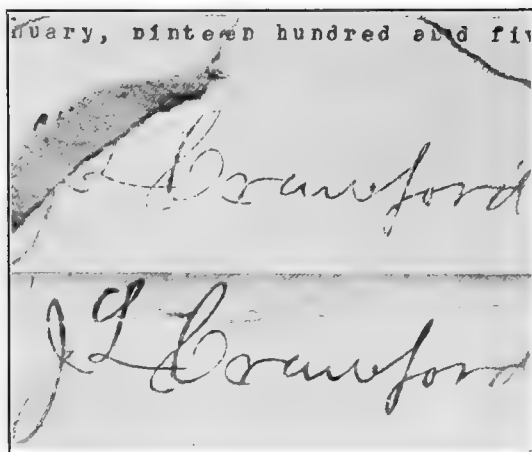 nuary, ninteen hundred and fiv
L Crawford
J L Crawford